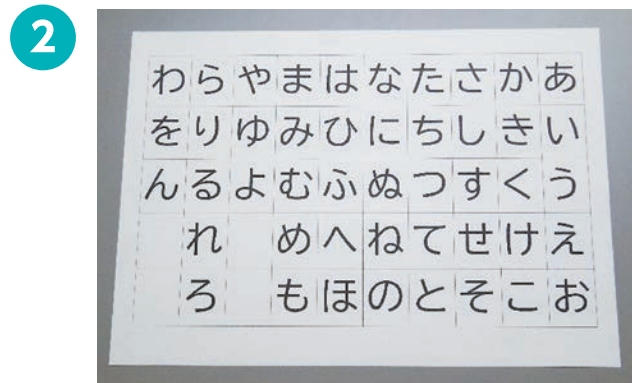 2
わらやまはなたさかあ
をりゆみひにちしきい
んるよむふぬつすくう
れ めへねてせけえ
ろ もほのとそこお